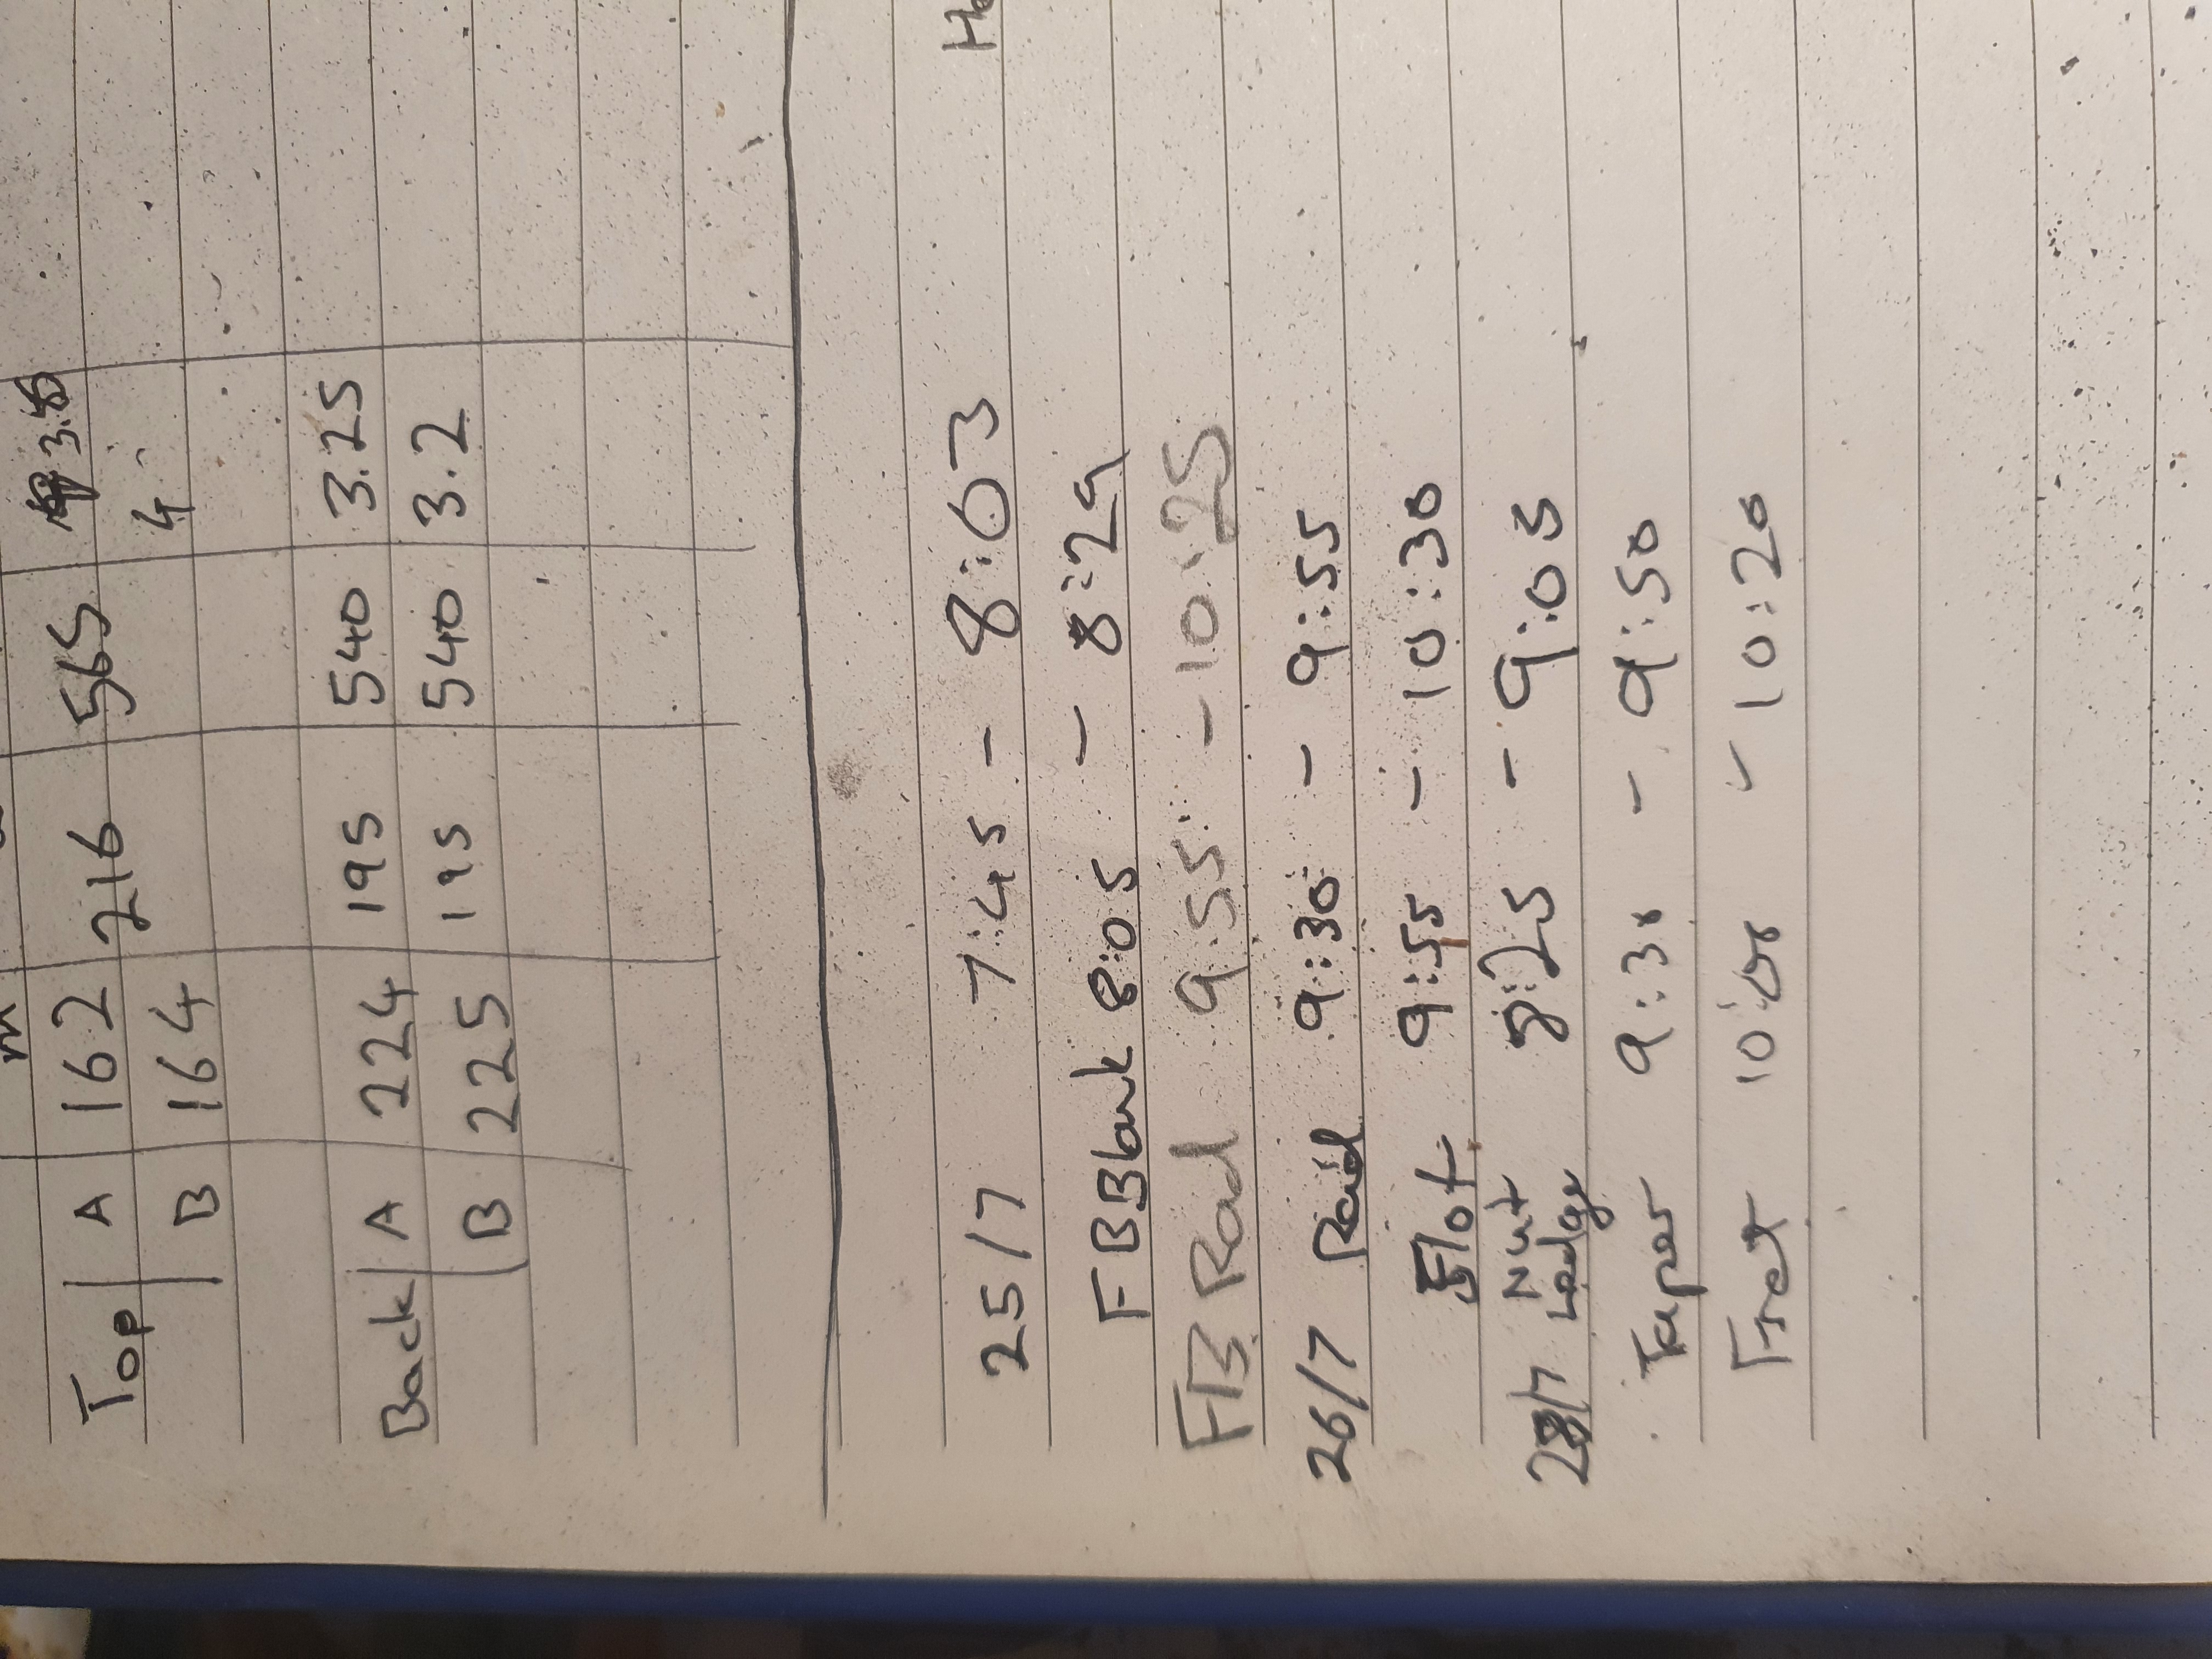 Top A 162 216 565 3.8
B 164 4
Back A 224 195 540 3.25
B 225 195 540 3.2
25/7 7:45 - 8:03
FBBlank 8:05 - 8:29
FB Rad 9:55 - 10:25
26/7 Rad 9:30 - 9:55
Slot 9:55 - 10:30
28/7 Nut Ledge 8:25 - 9:05
Taper 9:30 - 9:50
Fret 10:00 - 10:20